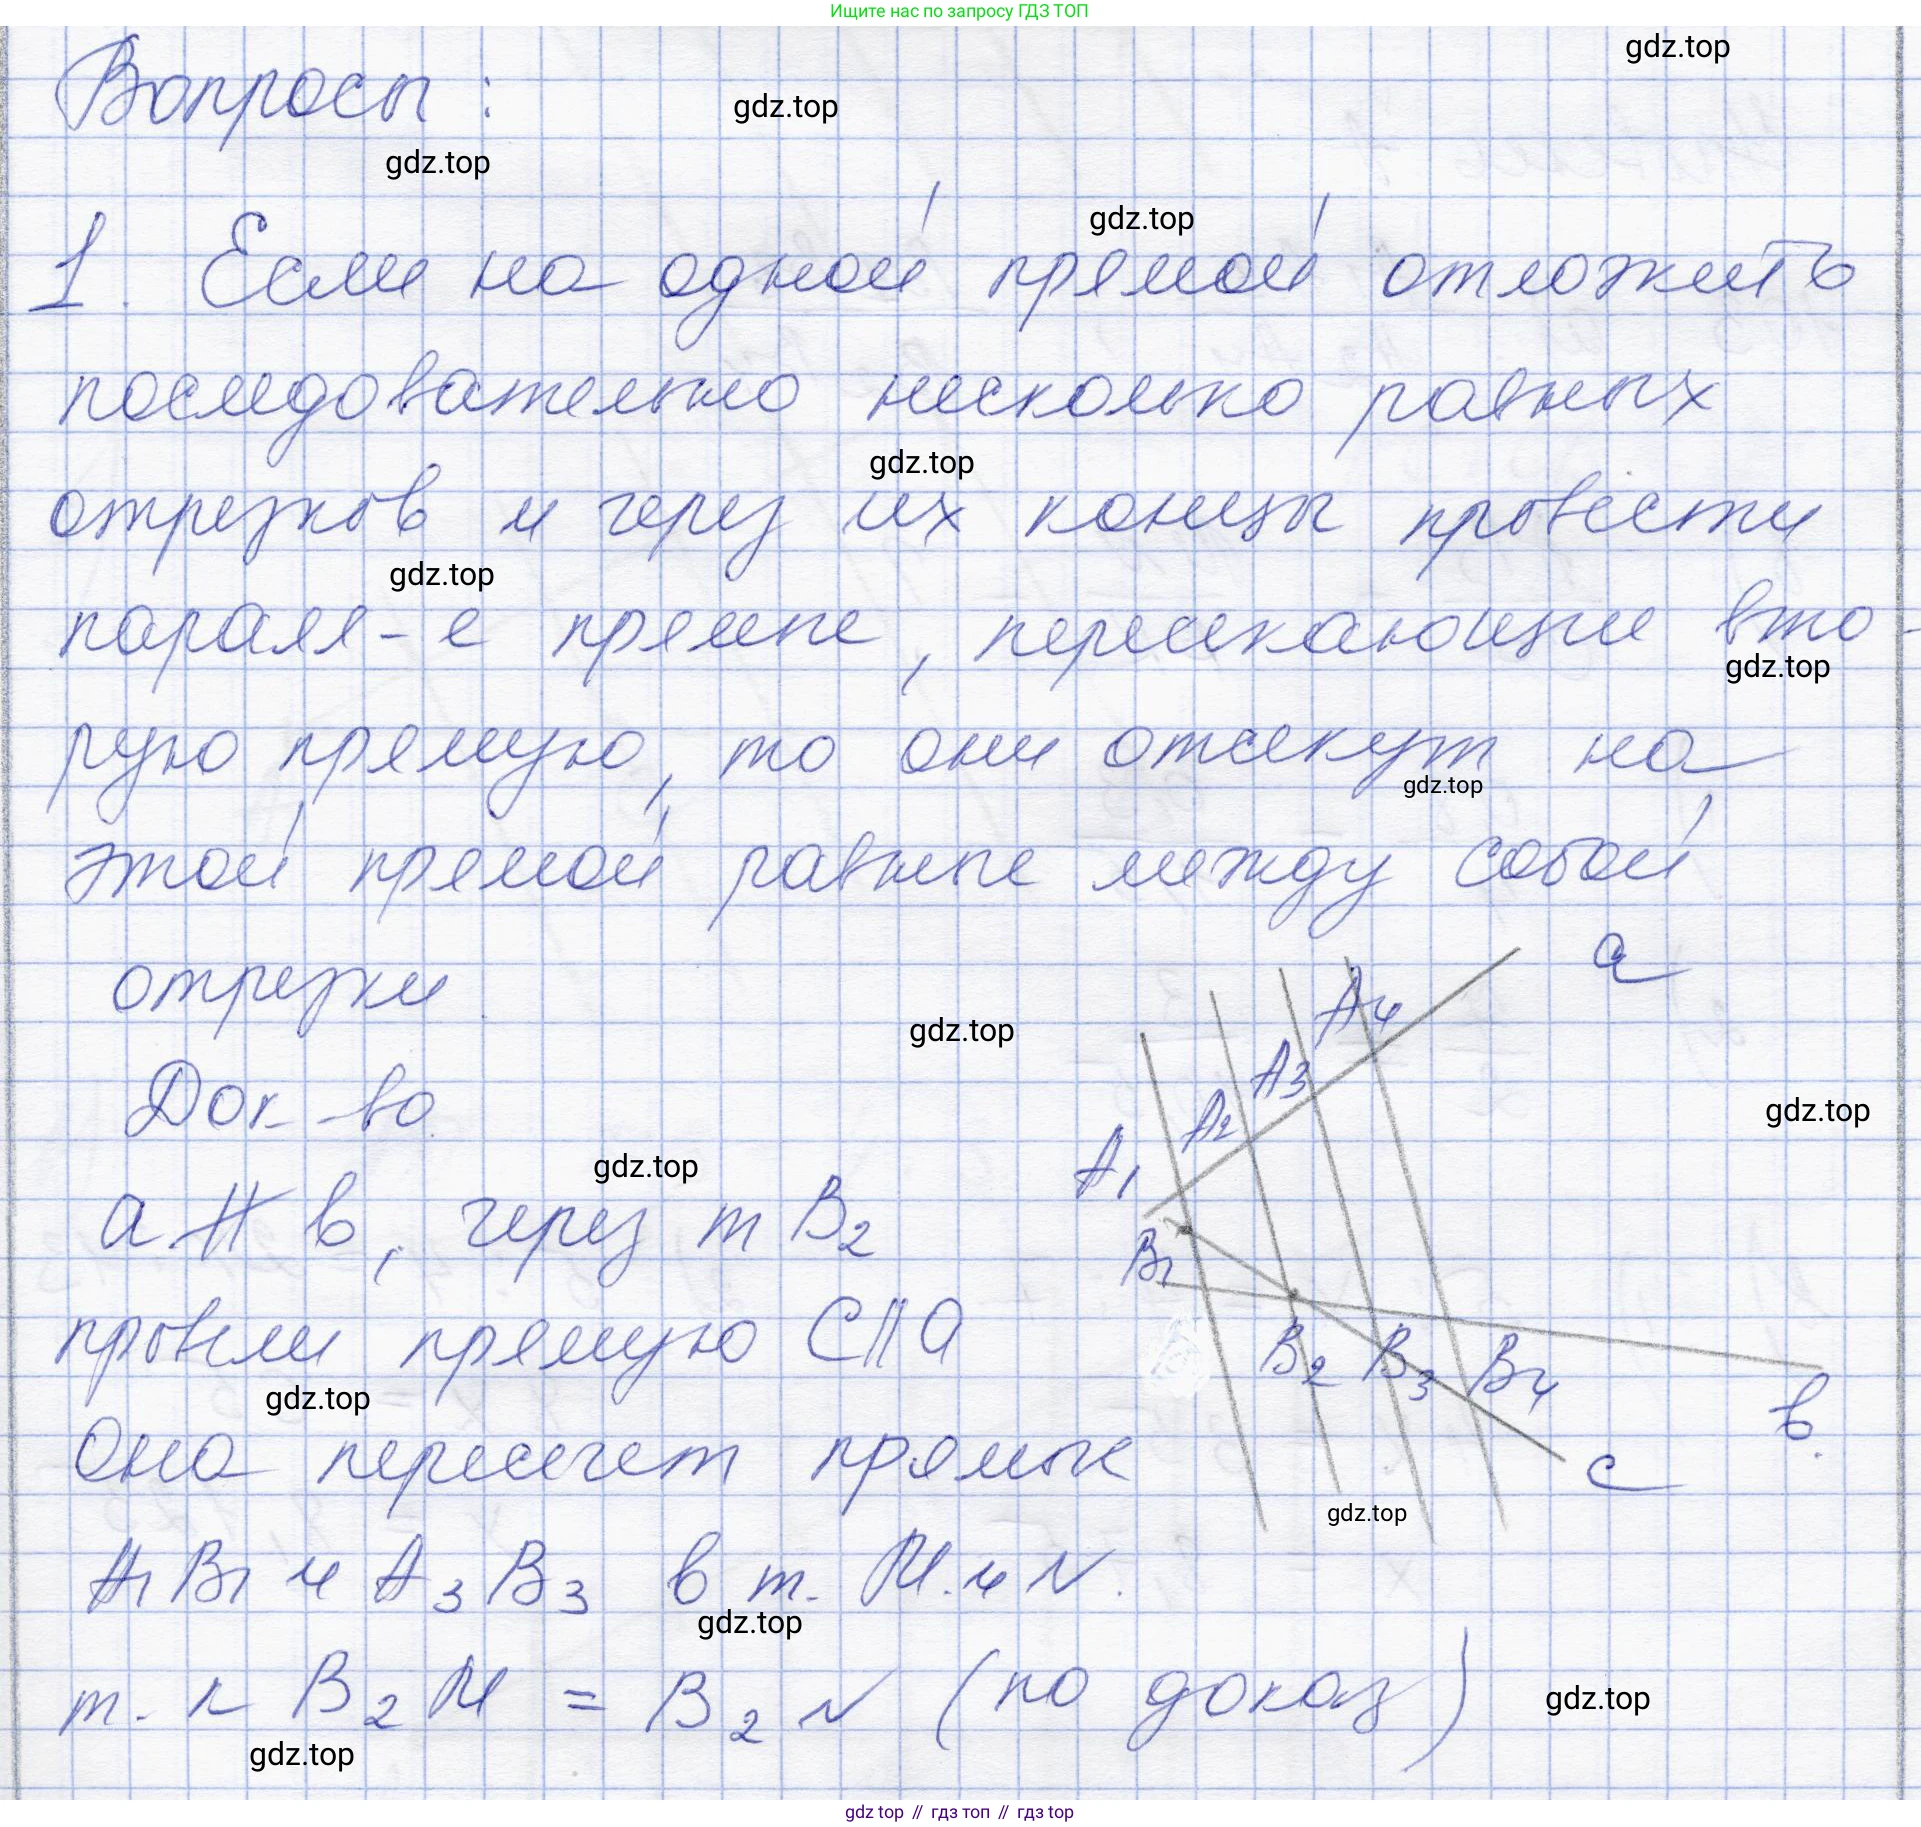 Ищите нас по запросу ГДЗ ТОП
gdz.top
Вопросы :
gdz.top
gdz.top
gdz.top
1. Если на одной прямой отложить
последовательно несколько равных
gdz.top
отрезков и через их концы провести
gdz.top
паралл-е прямые, пересекающие вто-
gdz.top
рую прямую, то они отсекут на
gdz.top
этой прямой равные между собой
отрезки.
a
A4
gdz.top
A3
Док-во.
A2
gdz.top
A1
gdz.top
a ∦ в, через т B2
B1
провели прямую C || a
B2 B3 B4
gdz.top
в
Она пересечет прямые
c
gdz.top
A1B1 и A3B3 в т. M и N.
gdz.top
т. к B2M = B2N (по доказ)
gdz.top
gdz.top
gdz top // гдз топ // гдз top